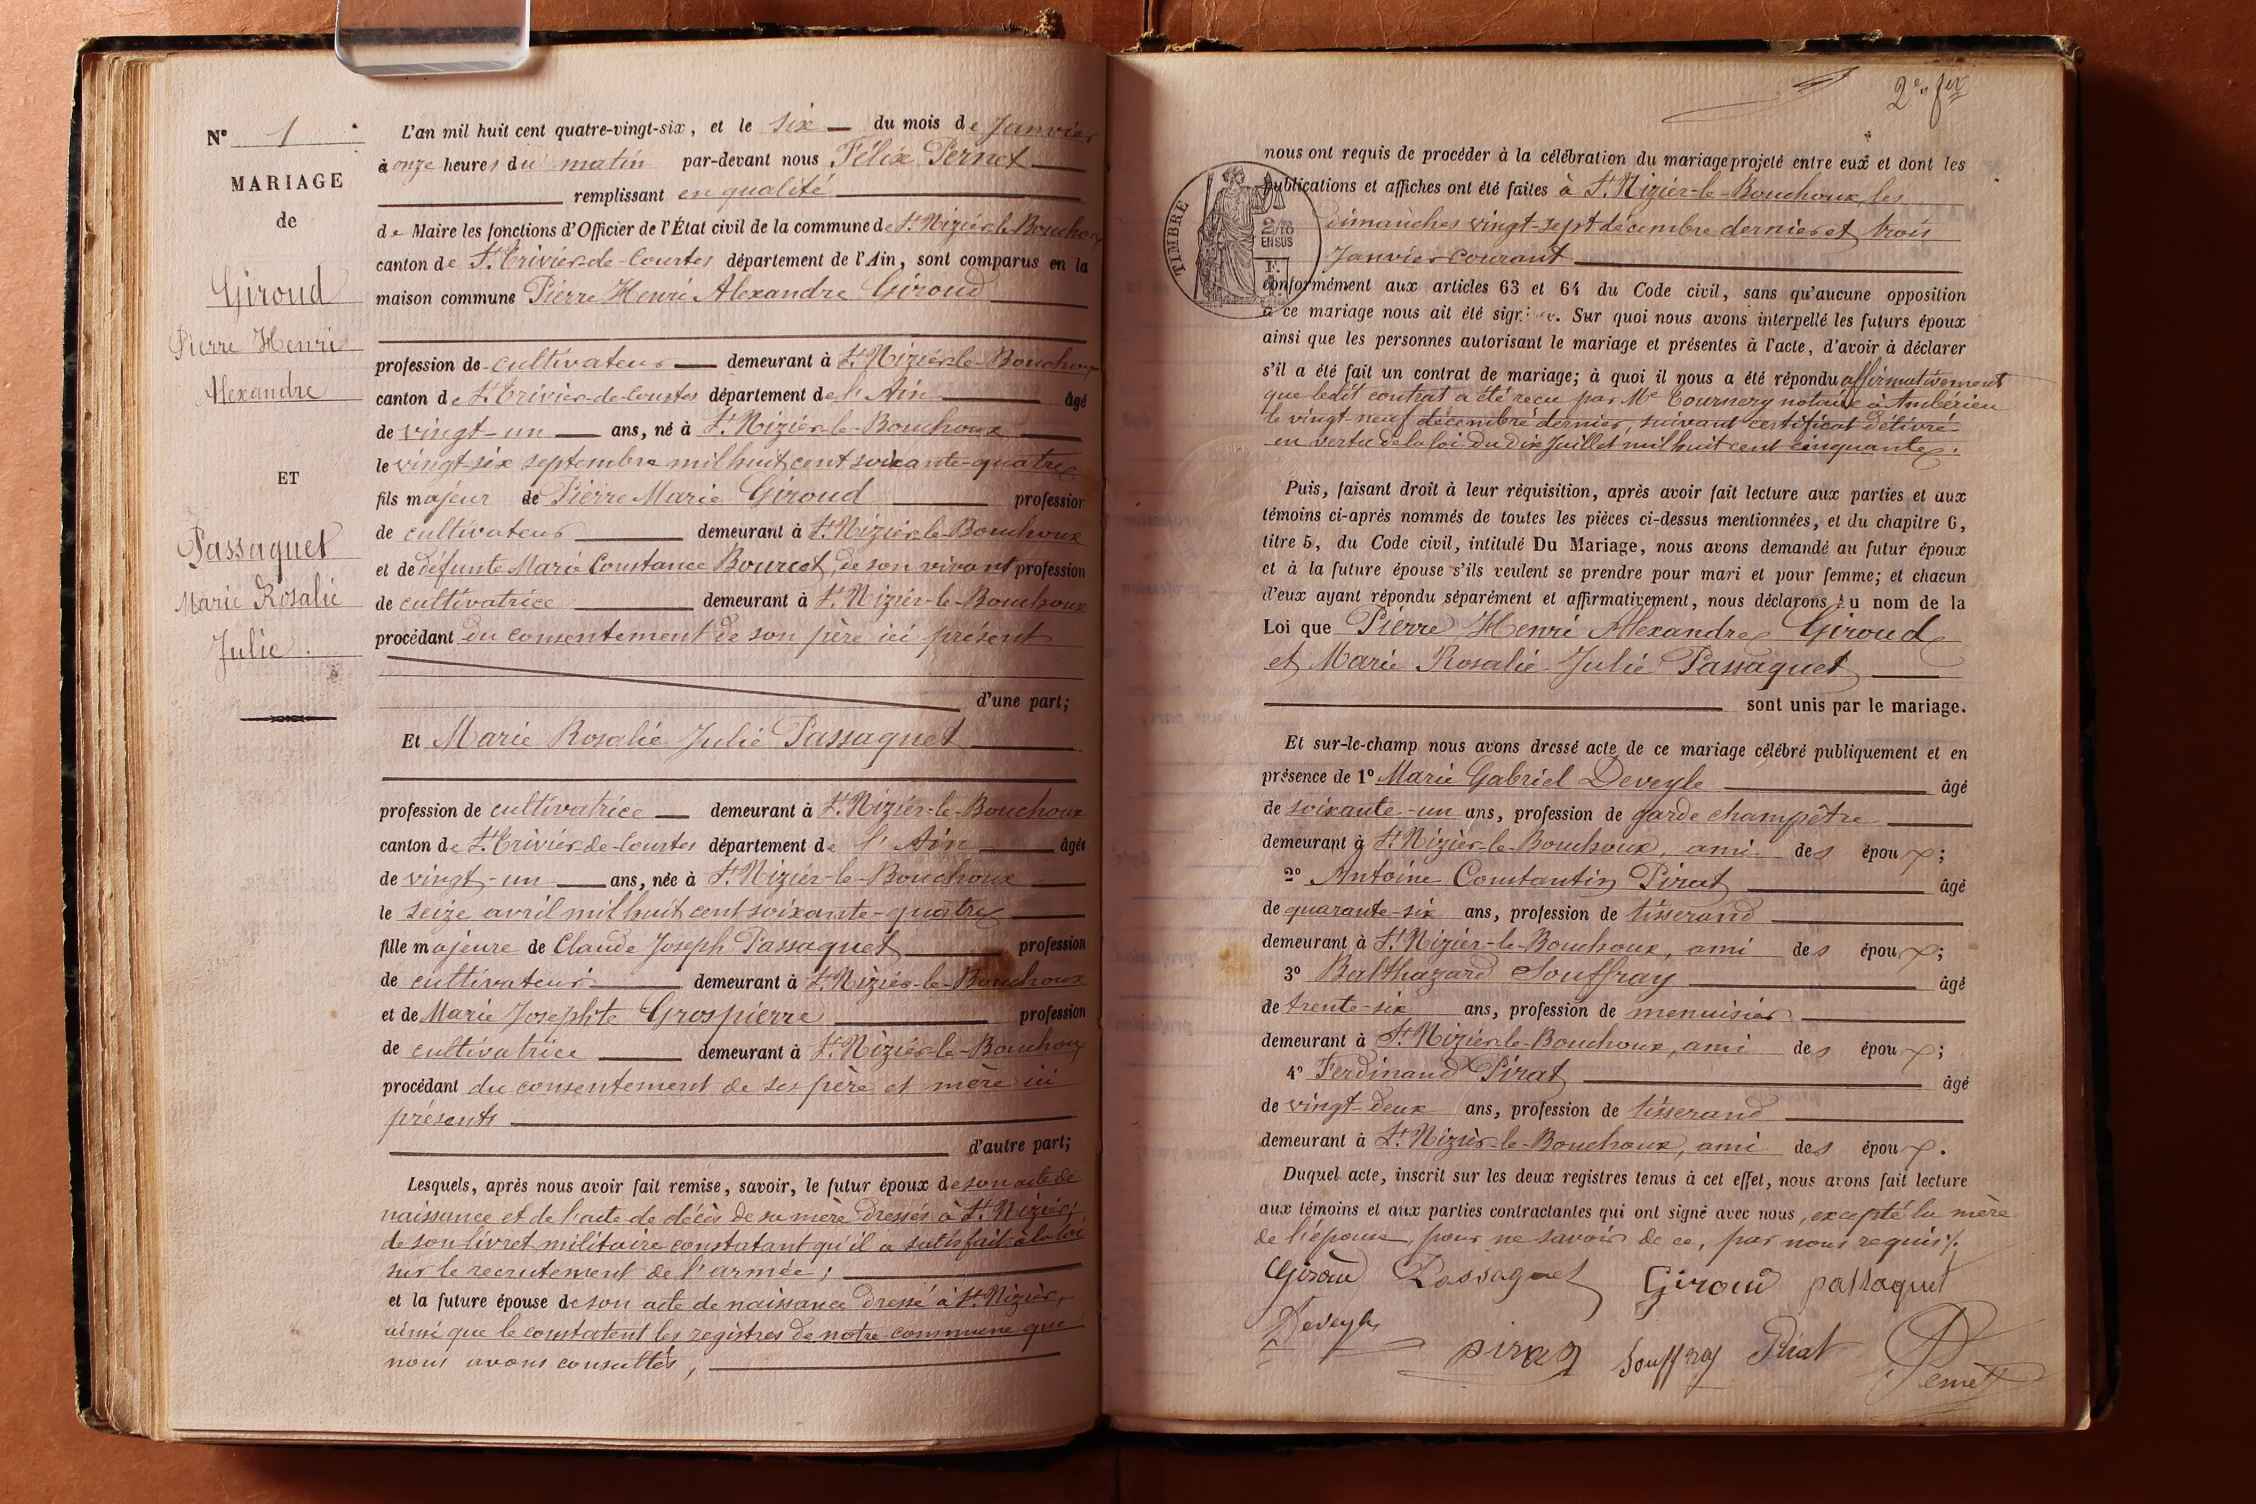 N° 1
MARIAGE
de
Giroud
Pierre Henri
Alexandre
ET
Passaquet
Marie Rosalie
Julie.
L'an mil huit cent quatre-vingt-six, et le six du mois de Janvier
à onze heures du matin par-devant nous Félix Pernet
remplissant en qualité
de Maire les fonctions d'Officier de l'État civil de la commune de St. Nizier-le-Bouchoux
canton de St. Trivier-de-Courtes département de l'Ain, sont comparus en la
maison commune Pierre Henri Alexandre Giroud
profession de cultivateur demeurant à St. Nizier-le-Bouchoux
canton de St. Trivier-de-Courtes département de l'Ain âgé
de vingt-un ans, né à St. Nizier-le-Bouchoux
le vingt-six septembre mil huit cent soixante-quatre
fils majeur de Pierre Marie Giroud profession
de cultivateur demeurant à St. Nizier-le-Bouchoux
et de défunte Marie Constance Bourcet, de son vivant profession
de cultivatrice demeurant à St. Nizier-le-Bouchoux
procédant du consentement de son père ici présent
d'une part;
Et Marie Rosalie Julie Passaquet
profession de cultivatrice demeurant à St. Nizier-le-Bouchoux
canton de St. Trivier-de-Courtes département de l'Ain âgée
de vingt-un ans, née à St. Nizier-le-Bouchoux
le seize avril mil huit cent soixante-quatre
fille majeure de Claude Joseph Passaquet profession
de cultivateur demeurant à St. Nizier-le-Bouchoux
et de Marie Josephte Grospierre profession
de cultivatrice demeurant à St. Nizier-le-Bouchoux
procédant du consentement de ses père et mère ici
présents
d'autre part;
Lesquels, après nous avoir fait remise, savoir, le futur époux de son acte de
naissance et de l'acte de décès de sa mère dressés à St. Nizier;
de son livret militaire constatant qu'il a satisfait à la loi
sur le recrutement de l'armée;
et la future épouse de son acte de naissance dressé à St. Nizier,
ainsi que le constatent les registres de notre commune que
nous avons consultés,
2e. fex
TIMBRE
2/10
EN SUS
nous ont requis de procéder à la célébration du mariage projeté entre eux et dont les
publications et affiches ont été faites à St. Nizier-le-Bouchoux, les
dimanches vingt-sept décembre dernier et trois
Janvier courant
conformément aux articles 63 et 64 du Code civil, sans qu'aucune opposition
à ce mariage nous ait été signifiée. Sur quoi nous avons interpellé les futurs époux
ainsi que les personnes autorisant le mariage et présentes à l'acte, d'avoir à déclarer
s'il a été fait un contrat de mariage; à quoi il nous a été répondu affirmativement
que ledit contrat a été reçu par Me Tournery notaire à Ambérieu
le vingt-neuf décembre dernier, suivant certificat délivré
en vertu de la loi du dix Juillet mil huit cent cinquante.
Puis, faisant droit à leur réquisition, après avoir fait lecture aux parties et aux
témoins ci-après nommés de toutes les pièces ci-dessus mentionnées, et du chapitre 6,
titre 5, du Code civil, intitulé Du Mariage, nous avons demandé au futur époux
et à la future épouse s'ils veulent se prendre pour mari et pour femme; et chacun
d'eux ayant répondu séparément et affirmativement, nous déclarons au nom de la
Loi que Pierre Henri Alexandre Giroud
et Marie Rosalie Julie Passaquet
sont unis par le mariage.
Et sur-le-champ nous avons dressé acte de ce mariage célébré publiquement et en
présence de 1° Marie Gabriel Deveyle âgé
de soixante-un ans, profession de garde champêtre
demeurant à St. Nizier-le-Bouchoux, ami des époux;
2° Antoine Constantin Pirat âgé
de quarante-six ans, profession de tisserand
demeurant à St. Nizier-le-Bouchoux, ami des époux;
3° Balthazard Souffray âgé
de trente-six ans, profession de menuisier
demeurant à St. Nizier-le-Bouchoux, ami des époux;
4° Ferdinand Pirat âgé
de vingt-deux ans, profession de tisserand
demeurant à St. Nizier-le-Bouchoux, ami des époux.
Duquel acte, inscrit sur les deux registres tenus à cet effet, nous avons fait lecture
aux témoins et aux parties contractantes qui ont signé avec nous, excepté la mère
de l'épouse, pour ne savoir de ce, par nous requis.
Giroud Passaquet Giroud passaquet
Deveyle pirat Souffray Pirat Pernet